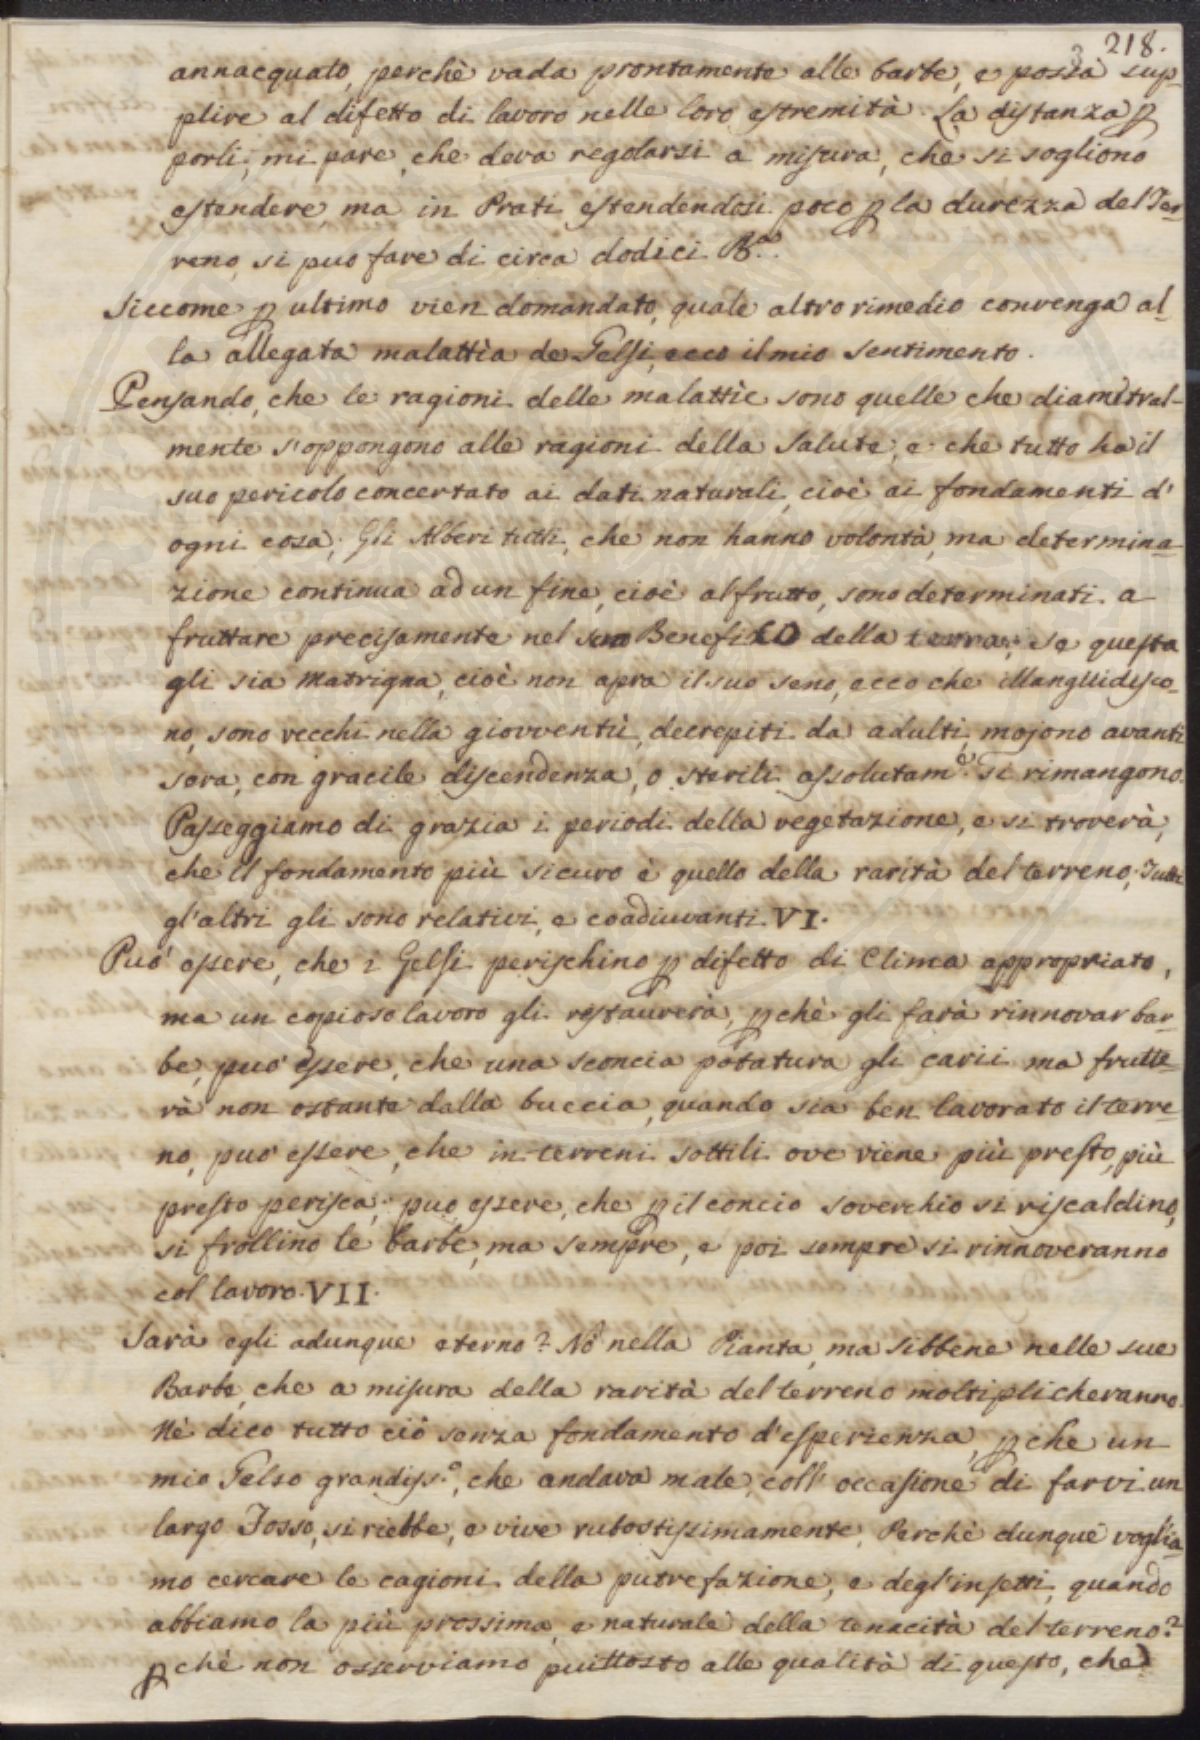 218.
annacquato, perchè vada prontamente alle barbe, e possa sup-
plire al difetto di lavoro nelle loro estremità. La distanza p
porli, mi pare, che deva regolarsi a misura, che si sogliono
estendere, ma in Prati estendendosi poco p la durezza del Ter-
reno, si può fare di circa dodici
Siccome p ultimo vien domandato, quale altro rimedio convenga al-
la allegata malattia de Gelsi, ecco il mio sentimento.
Pensando, che le ragioni delle malattie sono quelle che diametral-
mente s'oppongono alle ragioni della salute, e che tutto ha il
suo pericolo concertato ai dati naturali, cioè ai fondamenti d'
ogni cosa; Gli Alberi tutti, che non hanno volontà, ma determina-
zione continua ad un fine, cioè al frutto, sono determinati a
fruttare precisamente nel Benefizo della terra; se questa
gli sia Matrigna, cioè non apra il suo seno, ecco che illanguidisco-
no, sono vecchi nella gioventù, decrepiti da adulti, mojono avanti
sera, con gracile discendenza, o sterili assolutam.e si rimangono.
Passeggiamo di grazia i periodi della vegetazione, e si troverà,
che il fondamento più sicuro è quello della rarità del terreno; Tutti
gl'altri gli sono relativi, e coadiuvanti. VI.
Può essere, che i Gelsi perischino p difetto di Clima appropriato,
ma un copioso lavoro gli restaurerà, pchè gli farà rinnovar bar-
be, può essere, che una sconcia potatura gli carii ma frutte-
rà non ostante dalla buccia, quando sia ben lavorato il terre-
no, può essere, che in terreni sottili ove viene più presto, più
presto perisca; può essere, che p il concio soverchio si riscaldino,
si frollino le barbe, ma sempre, e poi sempre si rinnoveranno
col lavoro. VII.
Sarà egli adunque eterno? Nò nella Pianta, ma sibbene nelle sue
Barbe, che a misura della rarità del terreno moltiplicheranno.
Nè dico tutto ciò senza fondamento d'esperienza, p che un
mio Gelso grandiss.o, che andava male, coll' occasione di farvi un
largo Fosso, si riebbe, e vive rubostissimamente. Perchè dunque voglia-
mo cercare le cagioni della putrefazione, e degl'insetti, quando
abbiamo la più prossima, e naturale della tenacità del terreno?
pchè non osserviamo puittosto alle qualità di questo, che